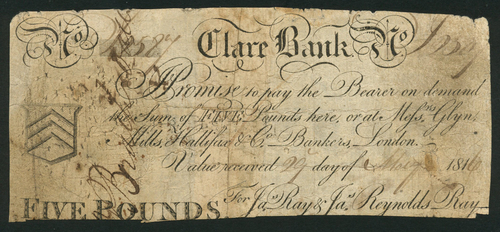 No Clare Bank. No
I Promise to pay the Bearer on demand
the Sum of FIVE Pounds here, or at Mess.rs Glyn,
Mills, Hallifax & Co. Bankers, London.
Value received 29 day of 181
FIVE POUNDS For Jas. Ray & Jas. Reynolds Ray